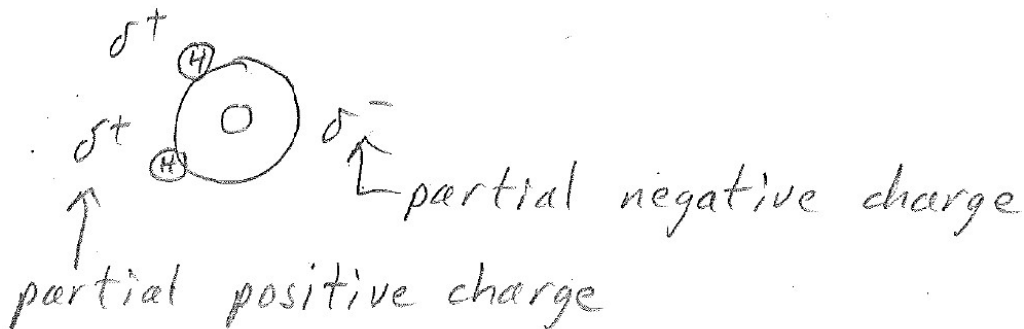 δ+
H
O
δ+
δ-
H
partial negative charge
partial positive charge